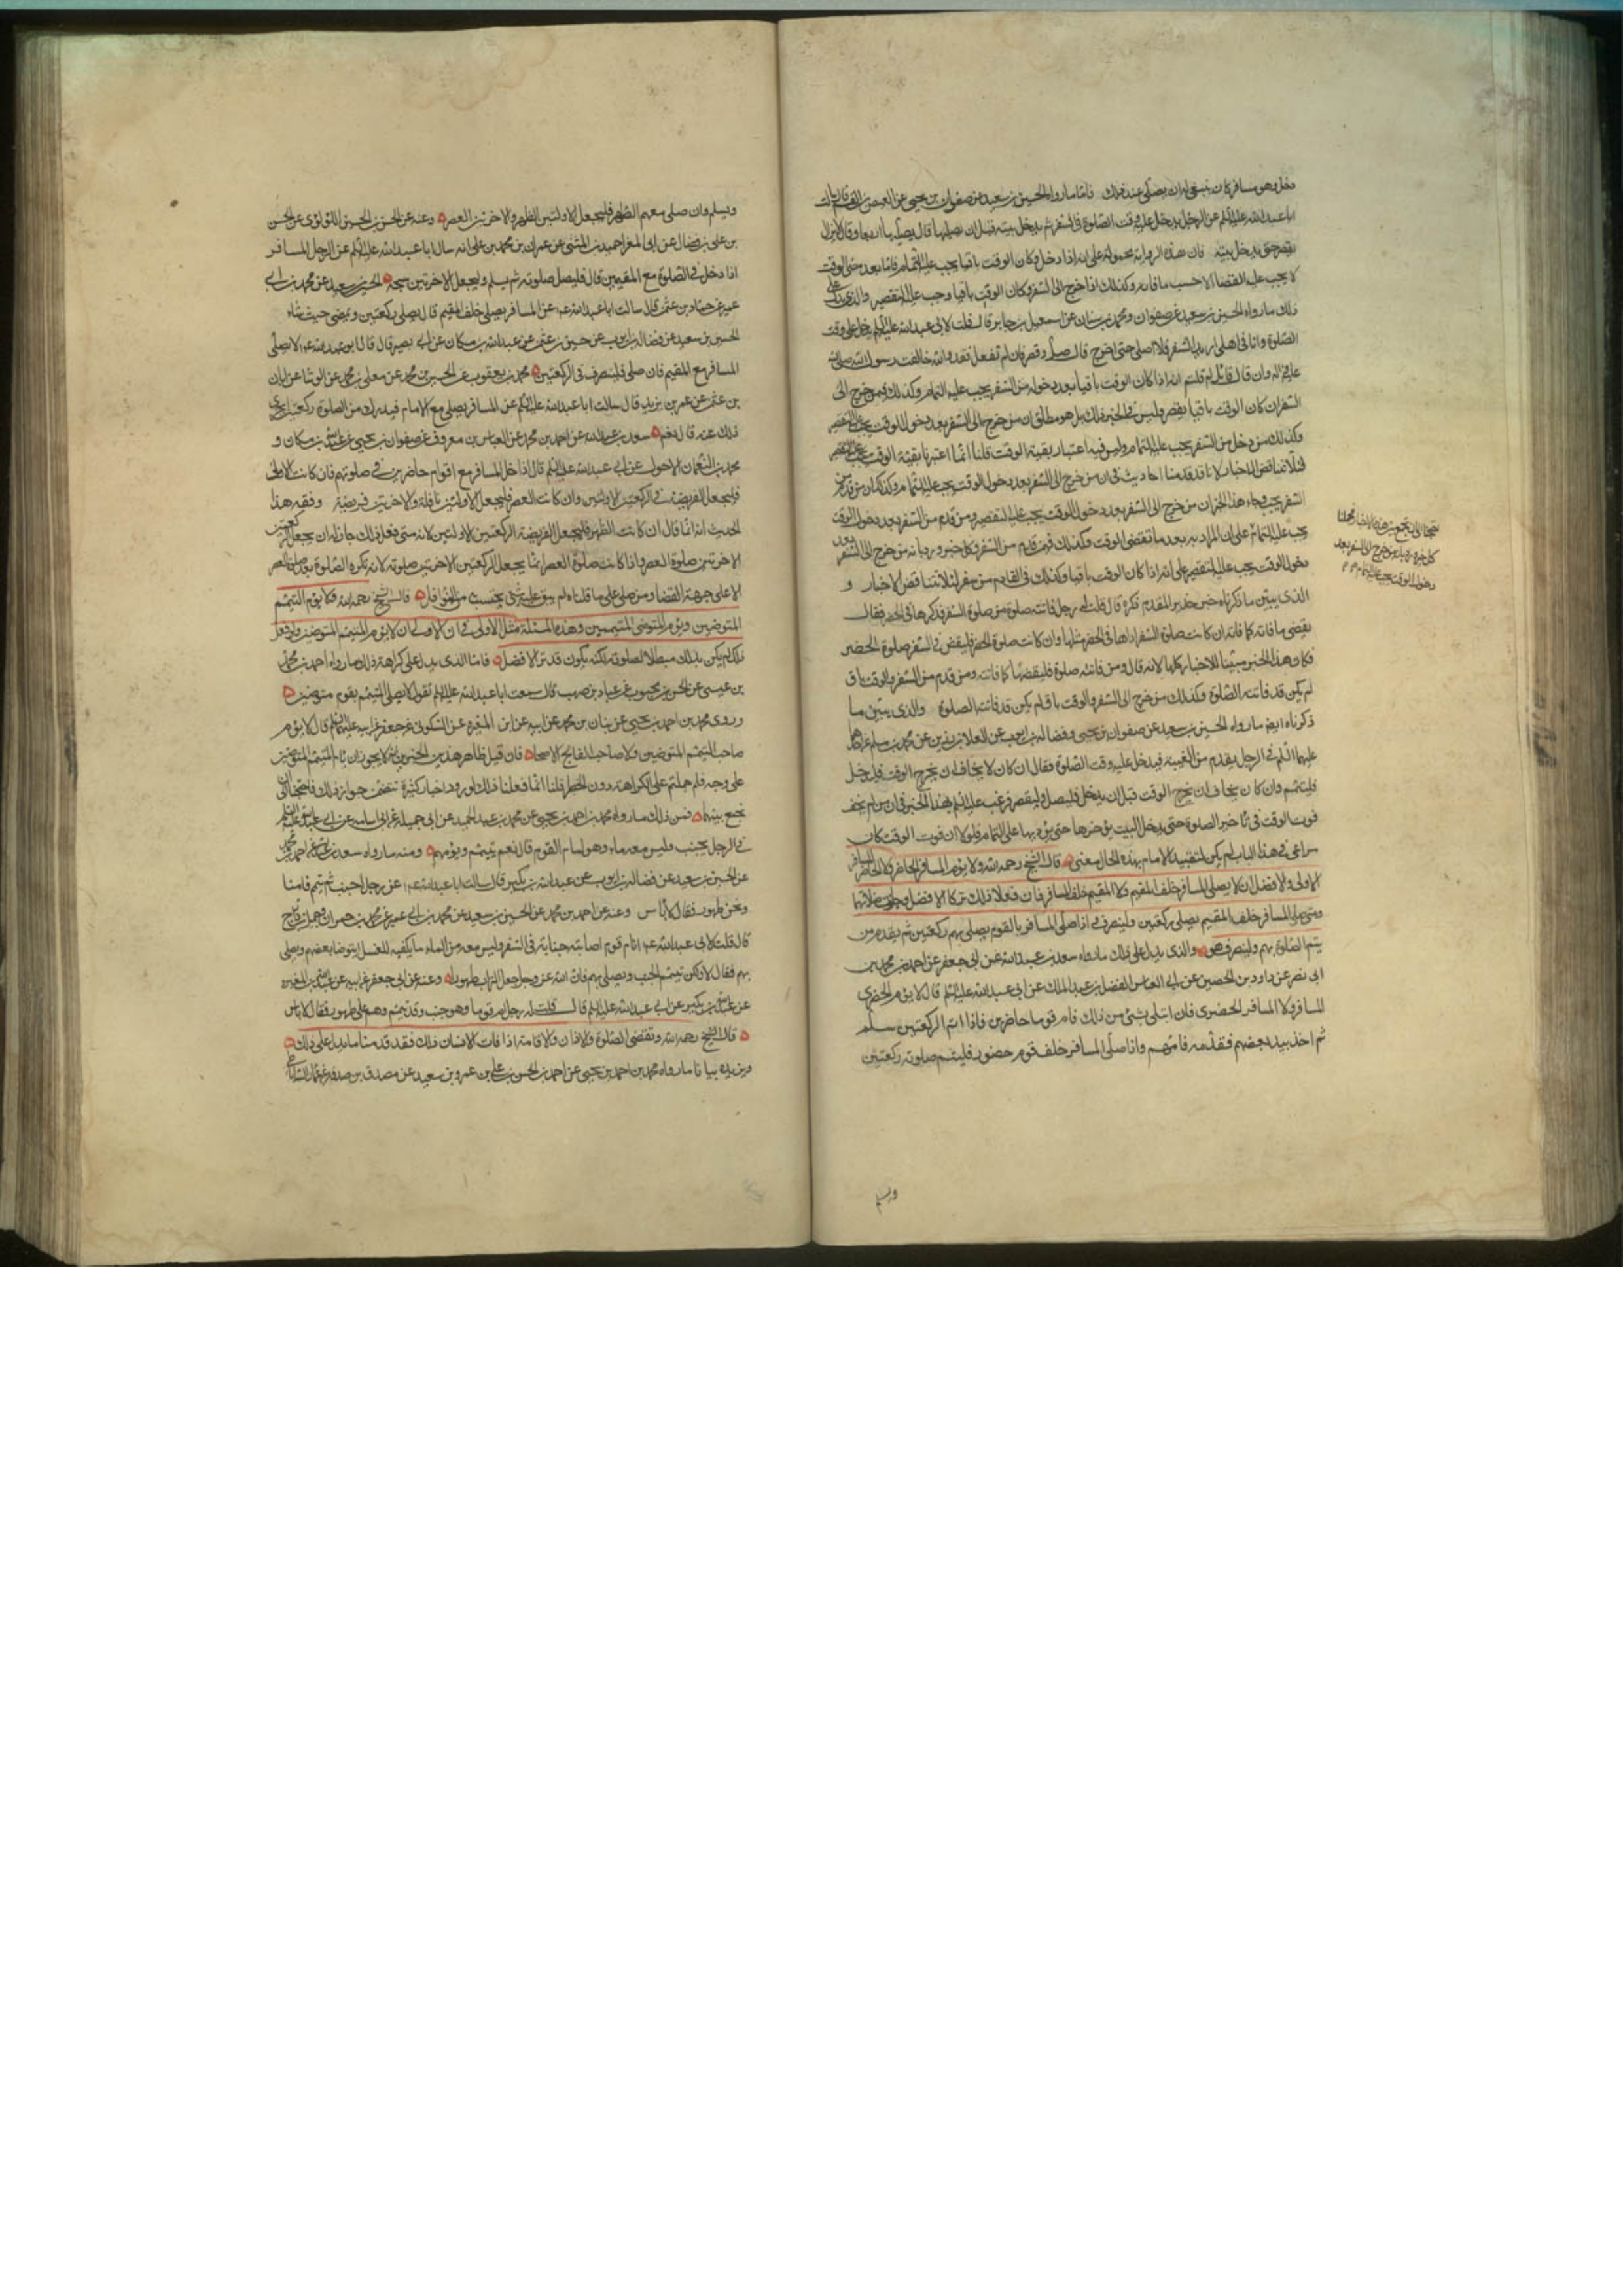 دخل وهو مسافر كان ينبغي له ان يصلى عند ذلك فاما ما رواه الحسين بن سعيد عن صفوان بن يحيى عن العيص بن القسم قال سالت
ابا عبد الله عليه السلم عن الرجل يدخل عليه وقت الصلوة في السفر ثم يدخل بيته قبل ان يصليها قال يصليها اربعا وقال لا يزال
يقصر حتى يدخل بيته فان هذه الرواية محمولة على انه اذا دخل وكان الوقت باقيا يجب عليه التمام فاما بعد مضى الوقت
لا يجب عليه القضا الا حسب ما فاته وكذلك اذا خرج الى السفر وكان الوقت باقيا وجب عليه التقصير والذي يدل على
ذلك ما رواه الحسين بن سعيد عن صفوان ومحمد بن سنان عن اسمعيل بن جابر قال قلت لابي عبد الله عليه السلم يدخل على وقت
الصلوة وانا في اهلي اريد السفر فلا اصلى حتى اخرج قال صل وقصر فان لم تفعل فقد والله خالفت رسول الله صلى الله
عليه واله وان قال قائل لم قلتم انه اذا كان الوقت باقيا بعد دخوله من السفر يجب عليه التمام وكذلك فيمن خرج الى
السفر ان كان الوقت باقيا يقصر وليس في الخبر ذلك بل هو مطلق ان من خرج الى السفر بعد دخول الوقت يجب عليه التقصير
وكذلك من دخل من السفر يجب عليه التمام وليس فيه اعتبار بقية الوقت قلنا انما اعتبرنا بقية الوقت
لئلا تتناقض الاخبار لانا قد قدمنا احاديث في ان من خرج الى السفر بعد دخول الوقت يجب عليه التمام وكذلك ان من قدم من
السفر يجب وجاء هذا الخبر ان من خرج الى السفر بعد دخول الوقت يجب عليه التقصير ومن قدم من السفر بعد دخول الوقت
يجب عليه التمام على ان المراد به بعد ما تقضى الوقت وكذلك فيمن قدم من السفر وكل خبر ورد بانه من خرج الى السفر بعد
دخول الوقت يجب عليه التقصير على انه اذا كان الوقت باقيا وكذلك في القادم من سفر لئلا تتناقض الاخبار و
الذي يبين ما ذكرناه خبر حذير المقدم ذكره قال قلت له رجل فاتته صلوة من صلوة السفر فذكرها في الحضر فقال
يقضى ما فاته كما فاته ان كانت صلوة السفر اداها في الحضر مثلها وان كانت صلوة الحضر فليقض في السفر صلوة الحضر
فكان هذا الخبر مبينا للاخبار كلها لانه قال ومن فاتته صلوة فليقضها كما فاتته ومن قدم من السفر والوقت باق
لم يكن قد فاتته الصلوة وكذلك من خرج الى السفر والوقت باق لم يكن قد فاتته الصلوة والذي يبين ما
ذكرناه ايضا ما رواه الحسين بن سعيد عن صفوان بن يحيى وفضالة بن ايوب عن العلا بن رزين عن محمد بن مسلم عن احدهما
عليهما السلم في الرجل يقدم من الغيبة فيدخل عليه وقت الصلوة فقال ان كان لا يخاف ان يخرج الوقت قبل يدخل
فليتم وان كان يخاف ان يخرج الوقت قبل ان يدخل فليصل وليقصر فرغب عليه السلم بهذا الخبر في ان من لم يخف
فوت الوقت في تاخير الصلوة حتى يدخل البيت يؤخرها حتى يؤديها على التمام فلولا ان فوت الوقت كان
مراعى في هذا الباب لم يكن لتقييد الامام بهذه الحال معنى قال الشيخ رحمه الله ولا يؤم المسافر الحاضر ولا الحاضر المسافر
الاولى والافضل ان لا يصلى المسافر خلف المقيم ولا المقيم خلف المسافر فان فعلا ذلك تركا الافضل وجازت صلاتهما
ومتى صلى المسافر خلف المقيم يصلى ركعتين ولينصرف واذا صلى المسافر بالقوم يصلى بهم ركعتين ثم يقدم من
يتم الصلوة بهم ولينصرف هو والذي يدل على ذلك ما رواه سعد بن عبد الله عن ابي جعفر عن احمد بن محمد بن
ابي نصر عن داود بن الحصين عن ابي العباس الفضل بن عبد الملك عن ابي عبد الله عليه السلم قال لا يؤم الحضري
المسافر ولا المسافر الحضرى فان ابتلى بشئ من ذلك فام قوما حاضرين فاذا اتم الركعتين سلم
ثم اخذ بيد بعضهم فقدمه فامهم واذا صلى المسافر خلف قوم حضور فليتم صلوته ركعتين
ويسلم
فتحتاج الى ان نجمع بين هذه الاخبار فحملنا
كل خبر ورد بانه من خرج الى السفر بعد
دخول الوقت يجب عليه التمام
ويسلم وان صلى معهم الظهر فليجعل الاولتين الظهر والاخرتين العصر وعنه عن الحسن بن الحسين اللؤلؤى عن الحسن
بن علي بن فضال عن ابي المغرا حميد بن المثنى عن عمران بن محمد بن علي انه سال ابا عبد الله عليه السلم عن الرجل المسافر
اذا دخل في الصلوة مع المقيمين قال فليصل صلوته ثم يسلم وليجعل الاخرتين سبحة الحسين بن سعيد عن محمد بن ابي
عمير عن حماد بن عثمن قال سالت ابا عبد الله عم عن المسافر يصلى خلف المقيم قال يصلى ركعتين ويمضى حيث شاء
الحسين بن سعيد عن فضالة بن ايوب عن حسين بن عثمن عن عبد الله بن مسكان عن ابي بصير قال قال ابو عبد الله عم لا يصلى
المسافر مع المقيم فان صلى فلينصرف في الركعتين محمد بن يعقوب عن الحسين بن محمد عن معلى بن محمد عن الوشا عن ابان
بن عثمن عن عمر بن يزيد قال سالت ابا عبد الله عليه السلم عن المسافر يصلى مع الامام فيدرك من الصلوة ركعتين ايجزى
ذلك عنه قال نعم سعد بن عبد الله عن احمد بن محمد عن العباس بن معروف عن صفوان بن يحيى عن عبد الله بن مسكان و
محمد بن النعمان الاحول عن ابي عبد الله عليه السلم قال اذا دخل المسافر مع اقوام حاضرين في صلوتهم فان كانت الاولى
فليجعل الفريضة في الركعتين الاولتين وان كانت العصر فليجعل الاولتين نافلة والاخرتين فريضة وفقه هذا
الحديث انه انما قال ان كانت الظهر فليجعل الفريضة الركعتين الاولتين لانه متى فعل ذلك جاز له ان يجعل الركعتين
الاخرتين صلوة العصر واذا كانت صلوة العصر انما يجعل الركعتين الاخرتين صلوته لانه تكره الصلوة بعد صلوة العصر
الا على جهة القضا ومن صلى على ما قلناه لم يبق عليه شئ يحتسب من النوافل قال الشيخ رحمه الله ولا يؤم المتيمم
المتوضين ويؤم المتوضى المتيممين وهذه المسئلة مثل الاولى في ان الاولى ان لا يؤم المتيمم المتوضين ولو فعل
ذلك لم يكن بذلك مبطلا لصلوته لكنه يكون قد ترك الافضل فاما الذي يدل على كراهة ذلك ما رواه احمد بن محمد
بن عيسى عن الحسن بن محبوب عن عباد بن صهيب قال سمعت ابا عبد الله عليه السلم يقول لا يصلى المتيمم بقوم متوضين
وروى محمد بن احمد بن يحيى عن بنان بن محمد عن ابيه عن ابن المغيره عن السكوني عن جعفر عن ابيه عليهما السلم قال لا يؤم
صاحب التيمم المتوضين ولا صاحب الفالج الاصحاء فان قيل ظاهر هذين الخبرين انه لا يجوز ان يام المتيمم المتوضين
على وجه فلم حملتم على الكراهة دون الحظر قلنا انما فعلنا ذلك لورود اخبار كثيرة تتضمن جواز ذلك فاحتجنا الى ان
نجمع بينهما فمن ذلك ما رواه محمد بن احمد بن يحيى عن محمد بن عبد الحميد عن ابي جميلة عن ابي اسامة عن ابي عبد الله عليه السلم
في الرجل يجنب وليس معه ماء وهو امام القوم قال نعم يتيمم ويؤمهم ومنه ما رواه سعد بن عبد الله عن احمد بن محمد
عن الحسين بن سعيد عن فضالة بن ايوب عن عبد الله بن بكير قال سالت ابا عبد الله عم عن رجل اجنب ثم تيمم فامنا
ونحن طهور فقال لا باس وعنه عن احمد بن محمد عن الحسين بن سعيد عن محمد بن ابي عمير عن محمد بن حمران وجميل بن دراج
قال قلت لابي عبد الله عم امام قوم اصابته جنابة في السفر وليس معه من الماء ما يكفيه للغسل ايتوضا بعضهم ويصلى
بهم فقال لا ولكن يتيمم الجنب ويصلى بهم فان الله عز وجل جعل التراب طهورا وعنه عن ابي جعفر عن ابيه عن عبد الله بن المغيره
عن عبد الله بن بكير عن ابي عبد الله عليه السلم قال قلت له رجل ام قوما وهو جنب وقد تيمم وهم على طهور فقال لا باس
قال الشيخ رحمه الله وتقضى الصلوة ولا اذان ولا اقامة اذا فات الانسان ذلك فقد قدمنا ما يدل على ذلك
ويزيده بيانا ما رواه محمد بن احمد بن يحيى عن احمد بن الحسن بن علي عن عمرو بن سعيد عن مصدق بن صدقة عن عمار الساباطي